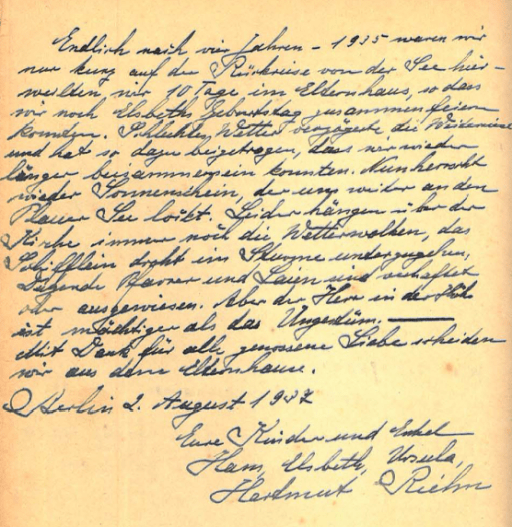 Endlich nach vier Jahren – 1935 waren wir
nur kurz auf der Rückreise von der See hier –
weilten wir 10 Tage im Elternhaus, so dass
wir noch Elsbeths Geburtstag zusammen feiern
konnten. Schlechtes Wetter verzögerte die Weiterreise
und hat so dazu beigetragen, dass wir wieder
länger beisammen sein konnten. Nun herrscht
wieder Sonnenschein, der uns weiter an den
Plauer See lockt. Leider hängen über der
Kirche immer noch die Wetterwolken, das
Schifflein droht im Sturme unterzugehen,
Pfarrer und Laien sind verhaftet
oder ausgewiesen. Aber der Herr in der Höh
ist mächtiger als das Ungetüm. —
Mit Dank für alle genossene Liebe scheiden
wir aus dem Elternhause.
Berlin 2. August 1937
Eure Kinder und Enkel
Hans, Elsbeth, Ursula,
Hartmut Riehm